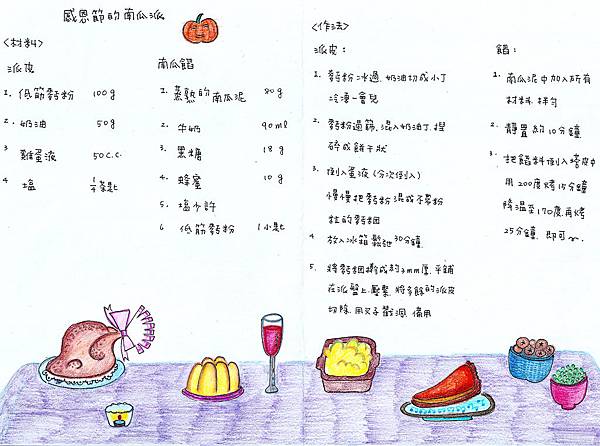 感恩節的南瓜派
<材料>
派皮
1. 低筋麵粉 100g
2. 奶油 50g
3 雞蛋液 50c.c.
4 塩 1/4茶匙
南瓜餡
1. 蒸熟的南瓜泥 80g
2. 牛奶 90ml
3. 黑糖 18g
4. 蜂蜜 10g
5. 塩少許
6 低筋麵粉 1小匙
<作法>
派皮:
1. 麵粉冰過.奶油切成小丁
冷凍一會兒
2. 麵粉過篩.混入奶油丁.捏
碎成餅干狀
3. 倒入蛋液(分次倒入)
慢慢把麵粉混成不黏
的麵糰
4 放入冰箱鬆弛30分鐘
5. 將麵糰擀成約3mm厚.平鋪
在派盤上.壓緊.將多餘的派皮
切除.用叉子戳洞.備用
餡:
1. 南瓜泥中加入所有
材料.拌勻
2. 靜置約10分鐘
3. 把餡料倒入塔皮中
用200度烤15分鐘
降溫至170度.再烤
25分鐘.即可~